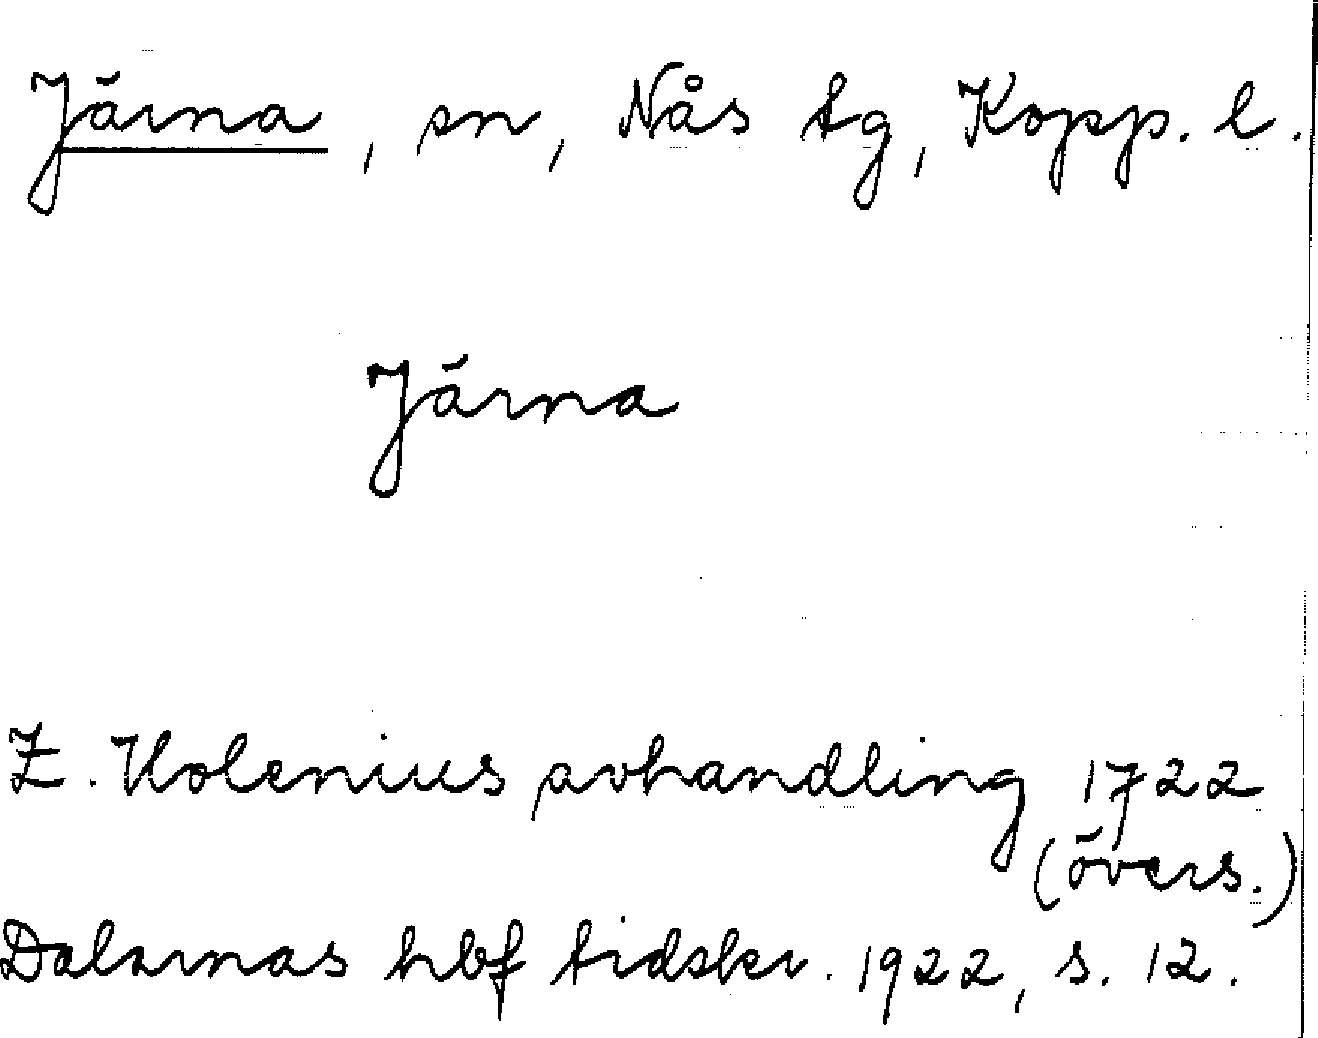 Järna, sn, Nås tg, Kopp. l.
Järna
Z. Holenius avhandling 1722
(övers.)
Dalarnas hbf tidskr. 1922, s. 12.